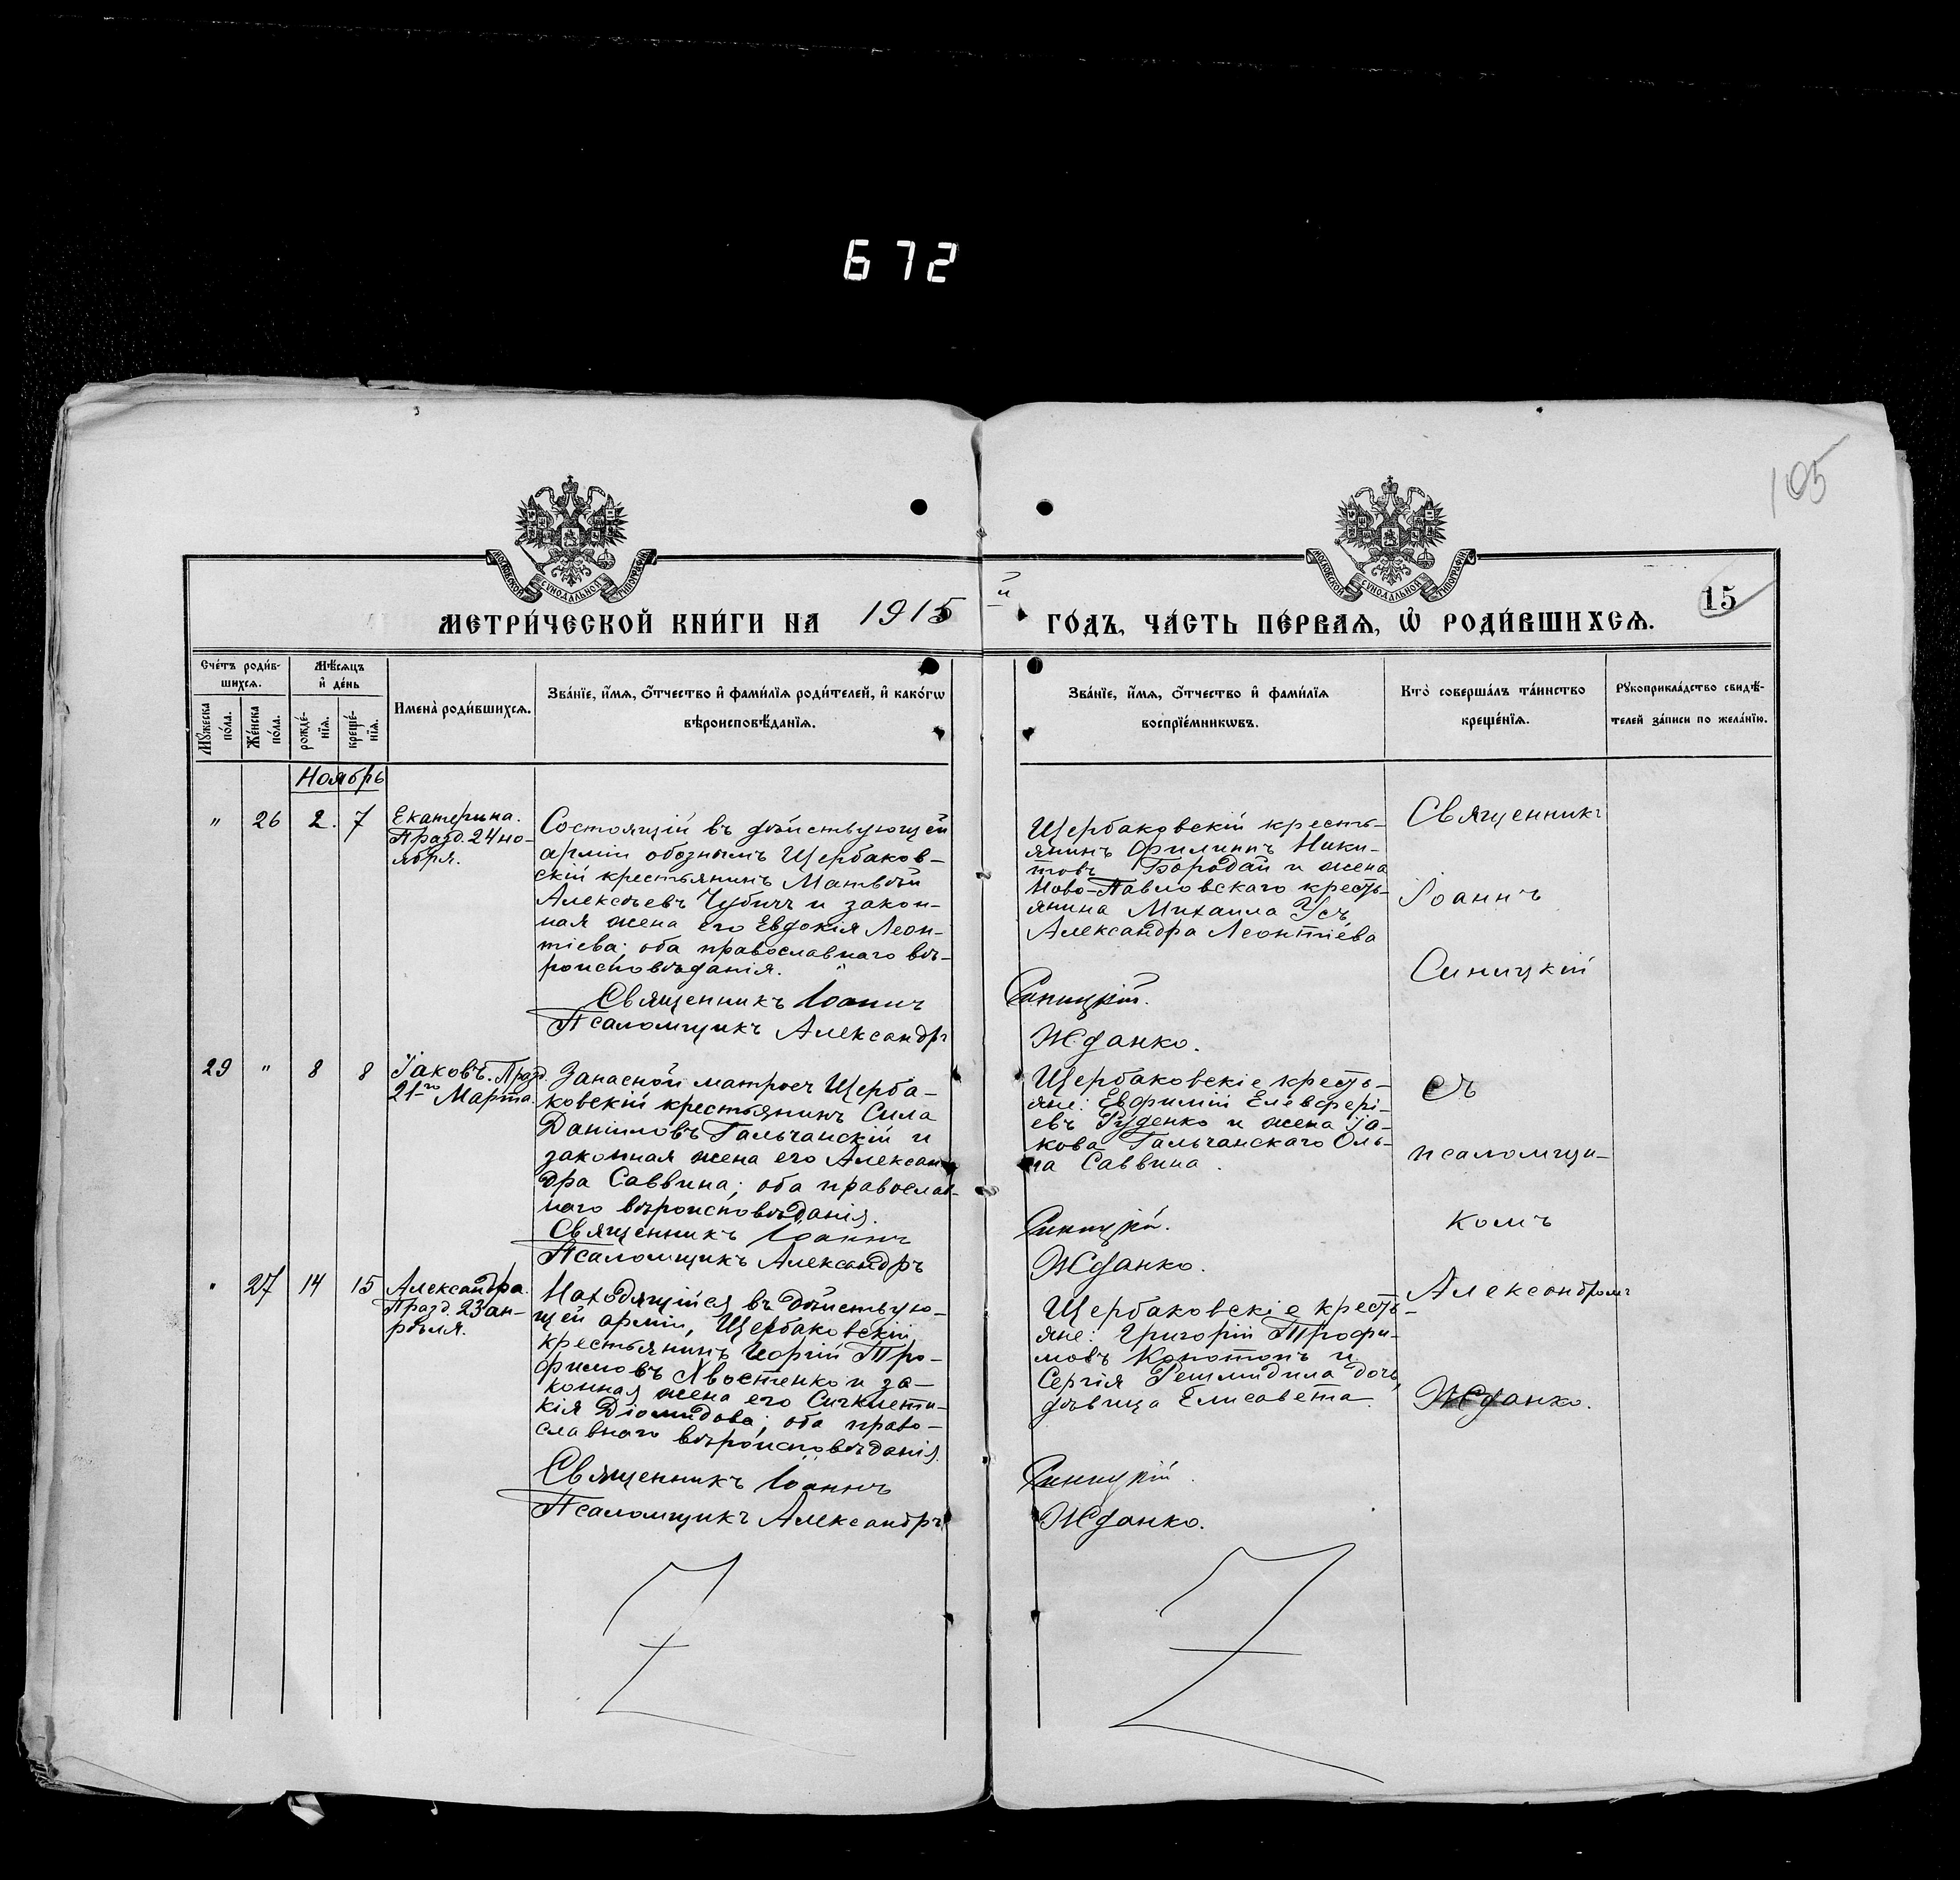 672
105
МОСКОВСКОЙ СѴНОДАЛЬНОЙ ТИПОГРАФІИ
МОСКОВСКОЙ СѴНОДАЛЬНОЙ ТИПОГРАФІИ
МЕТРИ́ЧЕСКОЙ КНИ́ГИ НА 1915 й ГО́ДЪ, ЧА́СТЬ ПЕ́РВАѦ, Ѡ҆ РОДИ́ВШИХСѦ.
15
Сче́тъ роди́в-
шихсѧ.
Мѣ́сѧцъ
и҆ де́нь
Мꙋ́жеска
по́ла.
Же́нска
по́ла.
рожде́-
нїѧ.
креще́-
нїѧ.
Имена̀ роди́вшихсѧ.
Зва́нїе, и҆́мѧ, ѻ҆́тчество и҆ фами́лїѧ роди́телей, и҆ како́гѡ
вѣроисповѣ́данїѧ.
Зва́нїе, и҆́мѧ, ѻ҆́тчество и҆ фами́лїѧ
воспрїе́мникѡвъ.
Кто̀ соверша́лъ та́инство
креще́нїѧ.
Рꙋкоприкла́дство свидѣ́-
телей за́писи по жела́нїю.
Ноябрь
" 26 2. 7
Екатерина.
Празд. 24 но-
ября.
Состоящій въ дѣйствующей
арміи обознымъ Щербаков-
скій крестьянинъ Матвѣй
Алексѣевъ Чубичъ и закон-
ная жена его Евдокія Леон-
тіева; оба православнаго вѣ-
роисповѣданія.
Священникъ Іоаннъ
Псаломщикъ Александръ
Щербаковскій кресть-
янинъ Филиппъ Ники-
товъ Бородай и жена
Ново-Павловскаго кресть-
янина Михаила Усъ
Александра Леонтіева
Синицкій.
Жданко.
Священникъ
Іоаннъ
Синицкій
29 " 8 8
Іаковъ. Празд.
21го Марта.
Запасной матросъ Щерба-
ковскій крестьянинъ Сила
Даніиловъ Гальчанскій и
законная жена его Алексан-
дра Саввина; оба православ-
наго вѣроисповѣданія.
Священникъ Іоаннъ
Псаломщикъ Александръ
Щербаковскіе кресть-
яне: Евфимій Елевфері-
евъ Руденко и жена Іа-
кова Гальчанскаго Оль-
га Саввина.
Синицкій.
Жданко.
съ
псаломщи-
комъ
" 27 14 15
Александра.
Празд. 23 ап-
рѣля.
Находящійся въ дѣйствую-
щей арміи, Щербаковскій
крестьянинъ Георгій Тро-
фимовъ Хвостенко и за-
конная жена его Сигклити-
кія Діомидова; оба право-
славнаго вѣроисповѣданія.
Священникъ Іоаннъ
Псаломщикъ Александръ
Щербаковскіе кресть-
яне: Григорій Трофи-
мовъ Конотопъ и
Сергія дочь,
дѣвица Елисавета.
Синицкій.
Жданко.
Александромъ
Жданко.